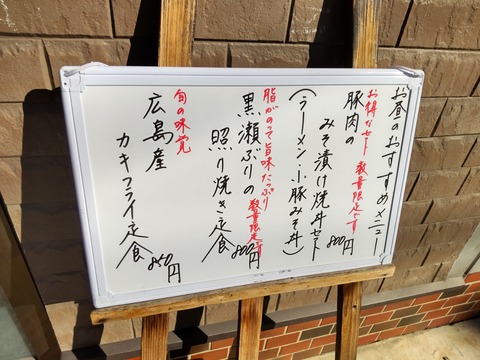 お昼のおすすめメニュー
お得なセット 数量限定です
豚肉の
みそ漬け焼丼セット
800円
(ラーメン・小豚みそ丼)
脂がのって旨味たっぷり
数量限定です
黒瀬ぶりの
照り焼き定食
800円
旬の味覚
広島産
カキフライ定食
850円